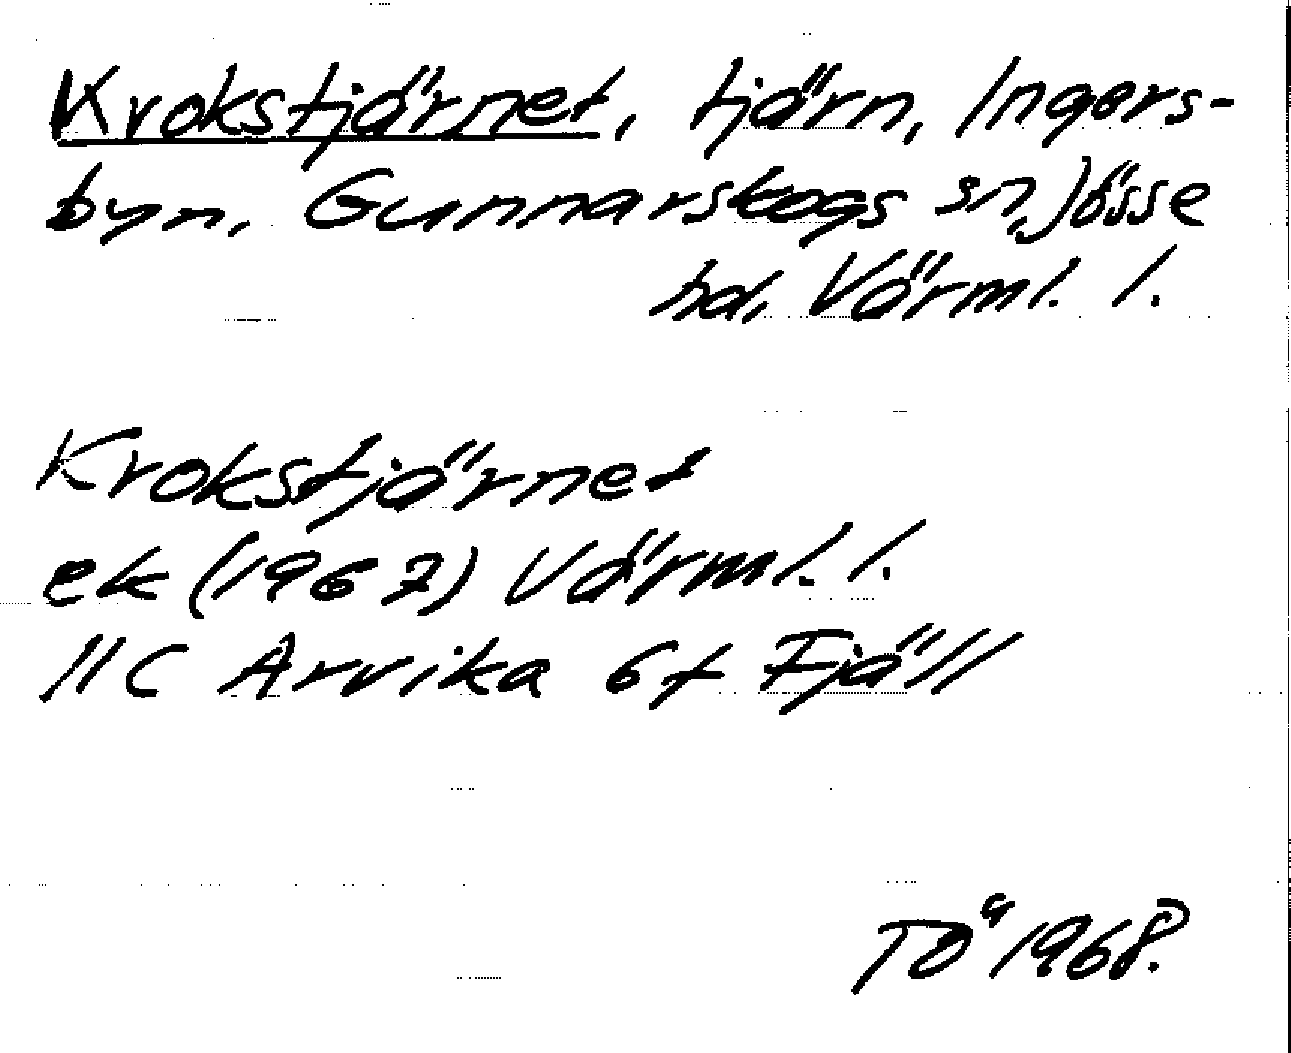 Krokstjärnet, tjärn, Ingers-
byn, Gunnarskogs sn, Jösse
hd, Värml. l.
Krokstjärnet
ek (1967) Värml. l.
11C Arvika 6f Fjäll
TÖ 1968.